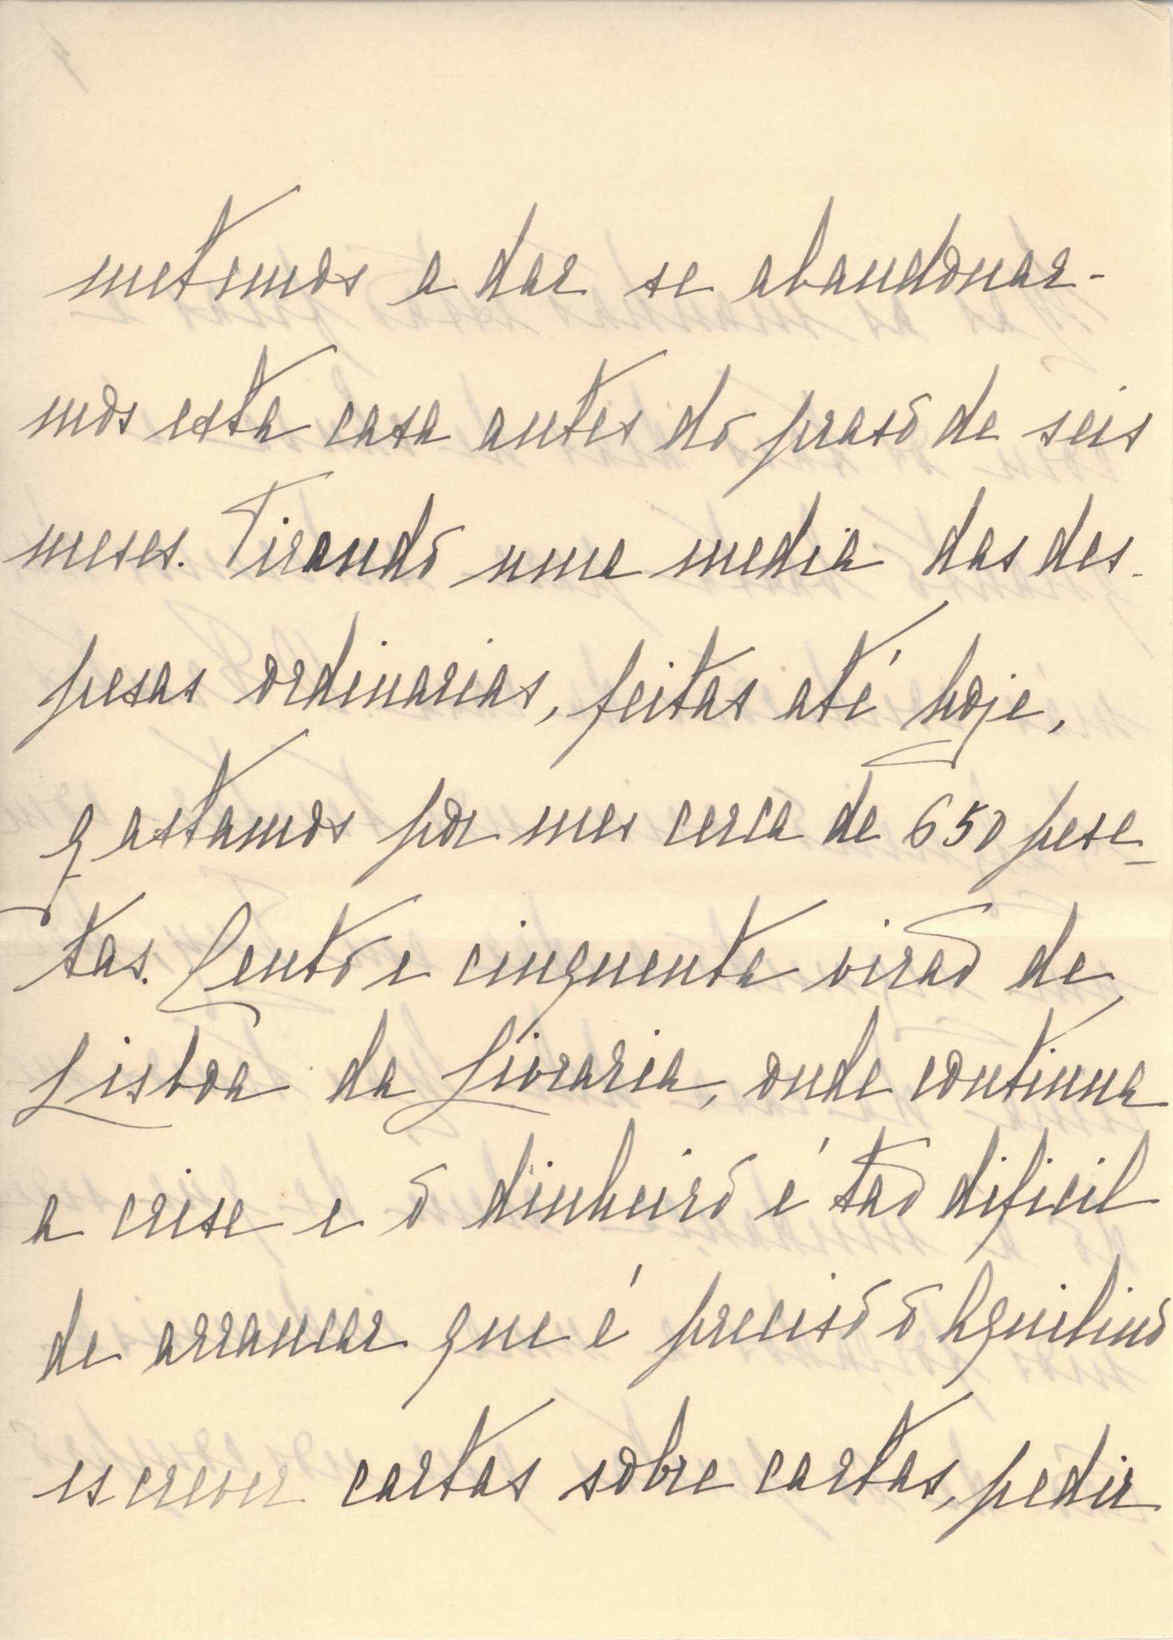 metemos a dar se abandonar-
mos esta casa antes do praso de seis
meses. Tirando uma media das des-
pesas ordinarias, feitas até hoje,
gastamos por mes cerca de 650 pese-
tas. Cento e cinquenta virão de
Lisboa da Livraria, onde continua
a crise e o dinheiro é tão dificil
de arrancar que é preciso o Aquilino
escrever cartas sobre cartas, pedir